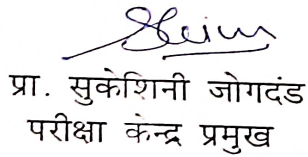 प्रा. सुकेशिनी जोगदंड
परीक्षा केन्द्र प्रमुख